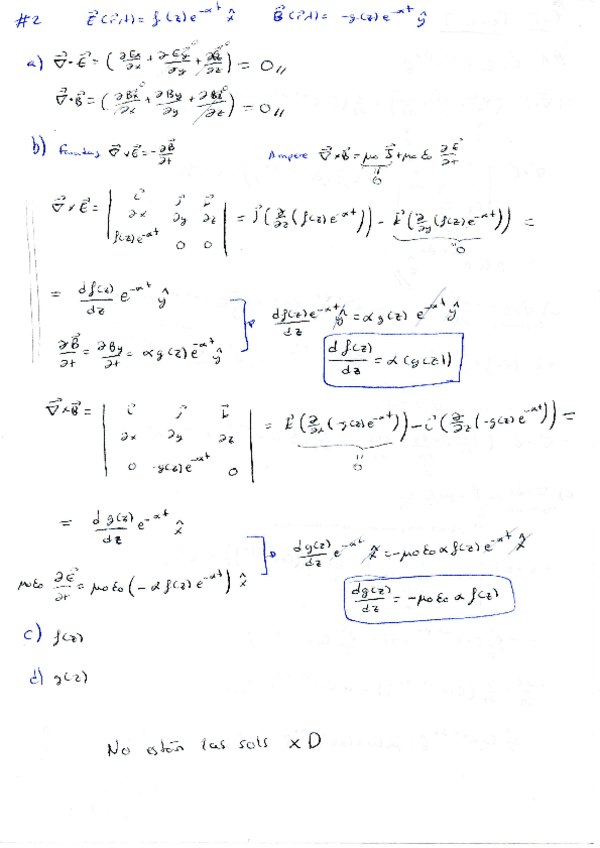 #2 E⃗(r⃗,t)= f(z)e^{-αt} x̂ B⃗(r⃗,t)= -g(z)e^{-αt} ŷ
a) ∇⃗·E⃗ = (∂Ex/∂x + ∂Ey/∂y + ∂Ez/∂z) = 0//
∇⃗·B⃗ = (∂Bx/∂x + ∂By/∂y + ∂Bz/∂z) = 0//
b) Faraday ∇⃗×E⃗ = -∂B⃗/∂t Ampere ∇⃗×B⃗ = μ0 J⃗ + μ0 ε0 ∂E⃗/∂t
0
∇⃗×E⃗ = | i⃗ j⃗ k⃗ | ∂x ∂y ∂z | f(z)e^{-αt} 0 0 | = j⃗(∂/∂z(f(z)e^{-αt})) - k⃗(∂/∂y(f(z)e^{-αt})) =
0
= df(z)/dz e^{-αt} ŷ
df(z)/dz e^{-αt} ŷ = αg(z) e^{-αt} ŷ
∂B⃗/∂t = ∂By/∂t = αg(z)e^{-αt} ŷ
df(z)/dz = α(g(z))
∇⃗×B⃗ = | i⃗ j⃗ k⃗ | ∂x ∂y ∂z | 0 -g(z)e^{-αt} 0 | = k⃗(∂/∂x(-g(z)e^{-αt})) - i⃗(∂/∂z(-g(z)e^{-αt})) =
0
= dg(z)/dz e^{-αt} x̂
dg(z)/dz e^{-αt} x̂ = -μ0ε0αf(z)e^{-αt} x̂
μ0ε0 ∂E⃗/∂t = μ0ε0(-αf(z)e^{-αt}) x̂
dg(z)/dz = -μ0ε0αf(z)
c) f(z)
d) g(z)
No están las sols xD